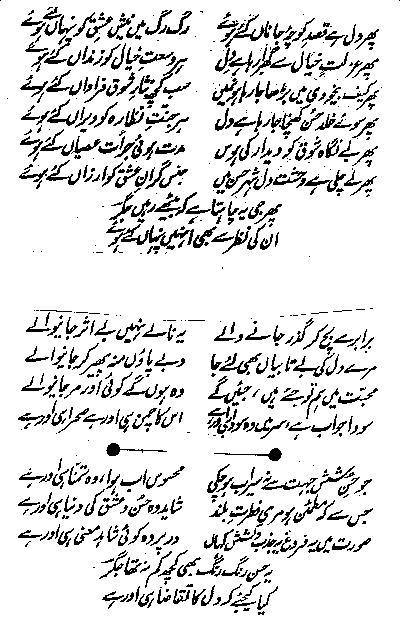 پھر دل ہے قصدِ کوچۂ جاناں کئے ہوئے رگ رگ میں نیشِ عشق کو پنہاں کئے ہوئے
پھر عزلتِ خیال سے گھبرا رہا ہے دل ہر وسعتِ خیال کو زنداں کئے ہوئے
پھر کیف بیخودی میں بڑھا جا رہا ہوں میں سب کچھ نثارِ شوقِ فراواں کئے ہوئے
پھر سوئے خلد حسن کھنچا جا رہا ہے دل ہر جنتِ نظارہ کو ویراں کئے ہوئے
پھر ہے نگاہ شوق کو دیدار کی ہوس مدت ہوئی جرأت عصیاں کئے ہوئے
پھر لے چلی ہے وحشت دل شہر حسن میں جنس گران عشق کو ارزاں کئے ہوئے
پھر جی یہ چاہتا ہے کہ بیٹھے رہیں جگر
ان کی نظر سے بھی انہیں پنہاں کئے ہوئے
برابر سے بچ کر گذر جانے والے یہ نالے نہیں بے اثر جانیوالے
مرے دل کی بے تابیاں بھی لئے جا دبے پاؤں منہ پھیر کر جانیوالے
محبت میں ہم تو جئے ہیں، جئیں گے وہ ہوں گے کوئی اور مر جانیوالے
سودا جو اب ہے سر میں وہ سودا ہی اور ہے اس کا چمن ہی اور ہے صحرا ہی اور ہے
جو حسن کشش جہت سے نہ سیراب ہو چکی محسوس اب ہوا، وہ تمنا ہی اور ہے
جس سے کہ مطمئن ہو مری فطرتِ بلند شاید وہ حسن و عشق کی دنیا ہی اور ہے
صورت میں یہ فروغ یہ جذب کشش کہاں در پردہ کوئی شاہد معنی ہی اور ہے
یہ حسن رنگ رنگ بھی کچھ کم نہ تھا جگر
کیا کیجئے کہ دل کا تقاضا ہی اور ہے